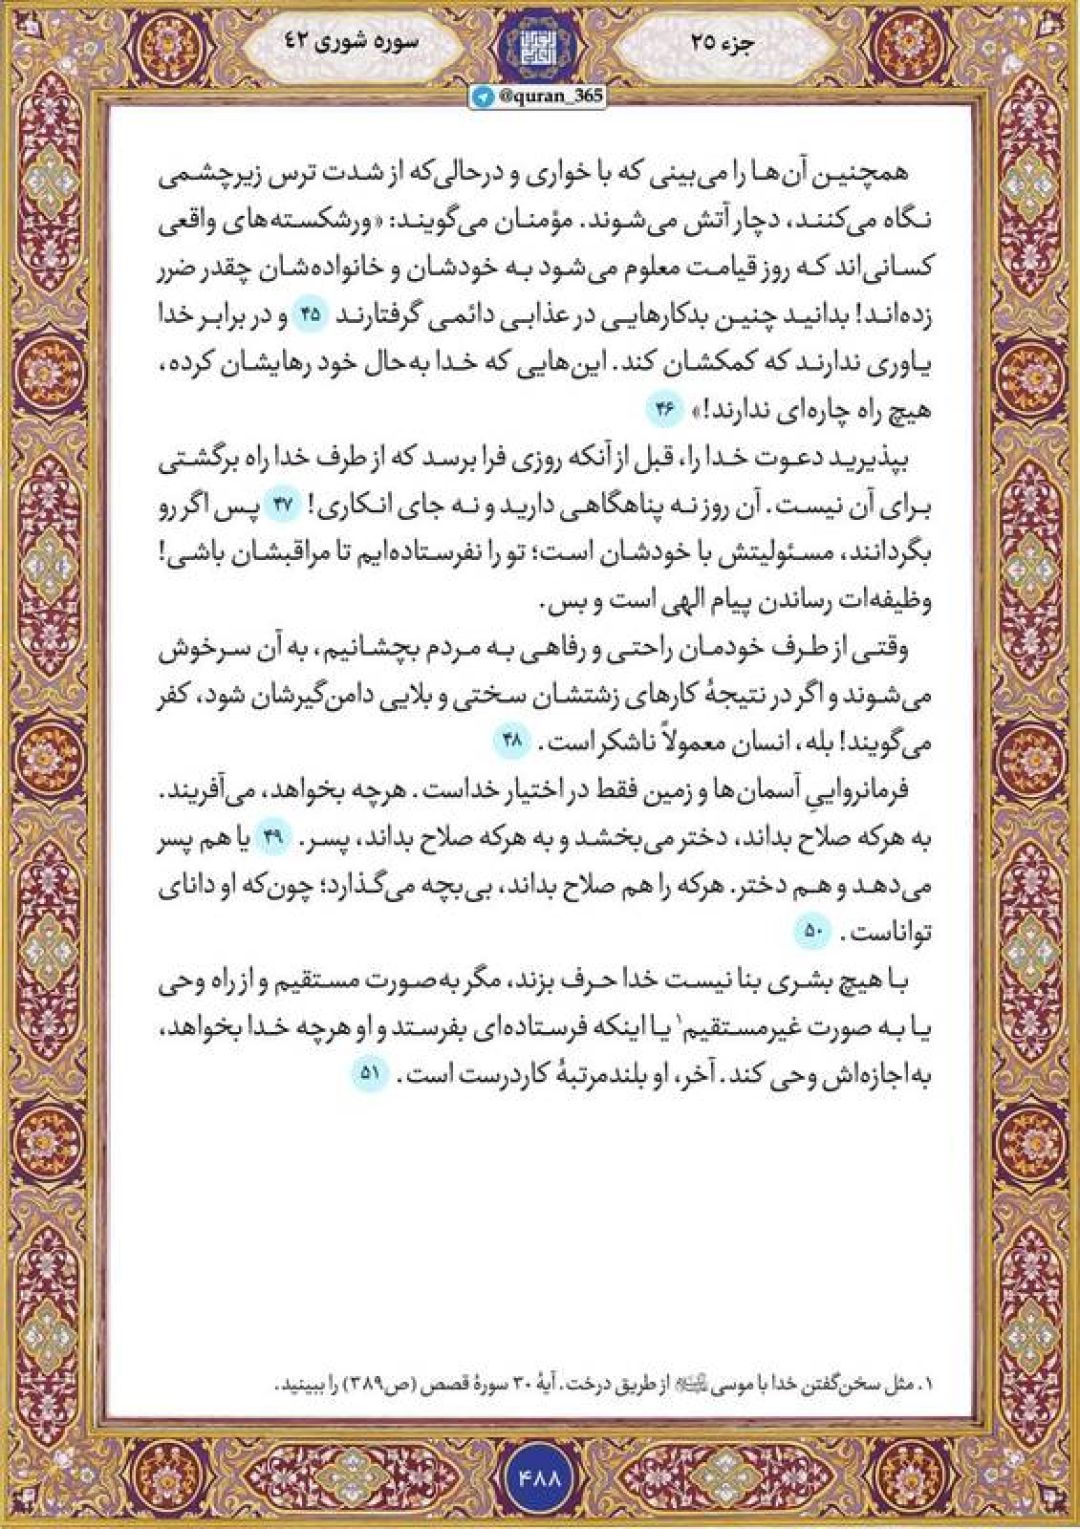 جزء ۲۵
سوره شوری ۴۲
@quran_365
همچنین آن‌ها را می‌بینی که با خواری و درحالی‌که از شدت ترس زیرچشمی
نگاه می‌کنند، دچار آتش می‌شوند. مؤمنان می‌گویند: «ورشکسته‌های واقعی
کسانی‌اند که روز قیامت معلوم می‌شود به خودشان و خانواده‌شان چقدر ضرر
زده‌اند! بدانید چنین بدکارهایی در عذابی دائمی گرفتارند ۴۵ و در برابر خدا
یاوری ندارند که کمکشان کند. این‌هایی که خدا به‌حال خود رهایشان کرده،
هیچ راه چاره‌ای ندارند!» ۴۶
بپذیرید دعوت خدا را، قبل از آنکه روزی فرا برسد که از طرف خدا راه برگشتی
برای آن نیست. آن روز نه پناهگاهی دارید و نه جای انکاری! ۴۷ پس اگر رو
بگردانند، مسئولیتش با خودشان است؛ تو را نفرستاده‌ایم تا مراقبشان باشی!
وظیفه‌ات رساندن پیام الهی است و بس.
وقتی از طرف خودمان راحتی و رفاهی به مردم بچشانیم، به آن سرخوش
می‌شوند و اگر در نتیجهٔ کارهای زشتشان سختی و بلایی دامن‌گیرشان شود، کفر
می‌گویند! بله، انسان معمولاً ناشکر است. ۴۸
فرمانرواییِ آسمان‌ها و زمین فقط در اختیار خداست. هرچه بخواهد، می‌آفریند.
به هرکه صلاح بداند، دختر می‌بخشد و به هرکه صلاح بداند، پسر. ۴۹ یا هم پسر
می‌دهد و هم دختر. هرکه را هم صلاح بداند، بی‌بچه می‌گذارد؛ چون‌که او دانای
تواناست. ۵۰
با هیچ بشری بنا نیست خدا حرف بزند، مگر به‌صورت مستقیم و از راه وحی
یا به صورت غیرمستقیم۱ یا اینکه فرستاده‌ای بفرستد و او هرچه خدا بخواهد،
به‌اجازه‌اش وحی کند. آخر، او بلندمرتبهٔ کاردرست است. ۵۱
۱. مثل سخن‌گفتن خدا با موسی از طریق درخت. آیهٔ ۳۰ سورهٔ قصص (ص۳۸۹) را ببینید.
۴۸۸